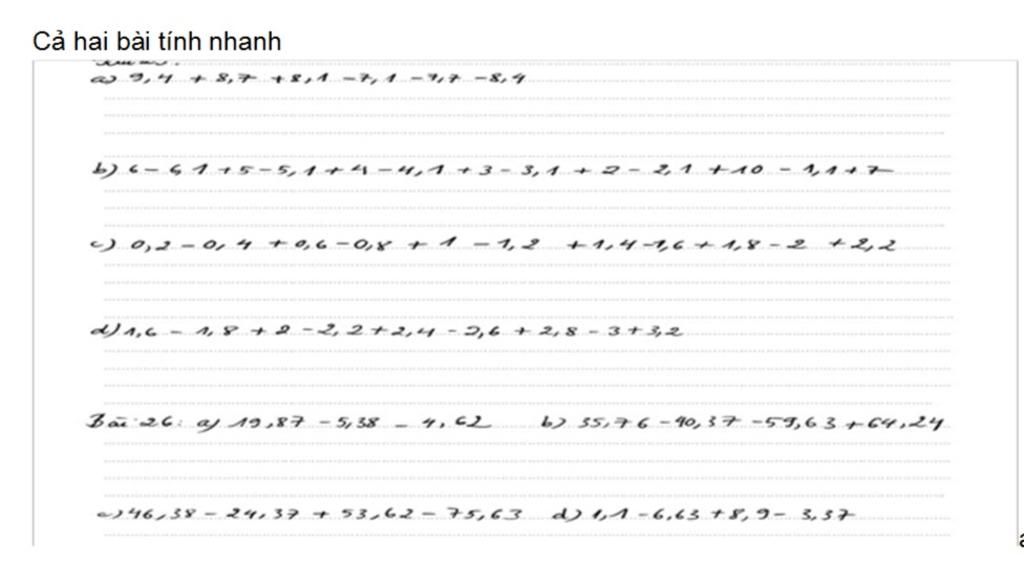 Cả hai bài tính nhanh
a) 9,4 + 8,7 + 8,1 - 7,1 - 7,7 - 8,4
b) 6 - 6 1 + 5 - 5,1 + 4 - 4,1 + 3 - 3,1 + 2 - 2,1 + 10 - 1,1 + 7
c) 0,2 - 0,4 + 0,6 - 0,8 + 1 - 1,2 + 1,4 - 1,6 + 1,8 - 2 + 2,2
d) 1,6 - 1,8 + 2 - 2,2 + 2,4 - 2,6 + 2,8 - 3 + 3,2
Bài 26: a) 19,87 - 5,38 - 4,62 b) 35,76 - 40,37 - 59,63 + 64,24
c) 46,38 - 24,37 + 53,62 - 75,63 d) 1,1 - 6,63 + 8,9 - 3,37